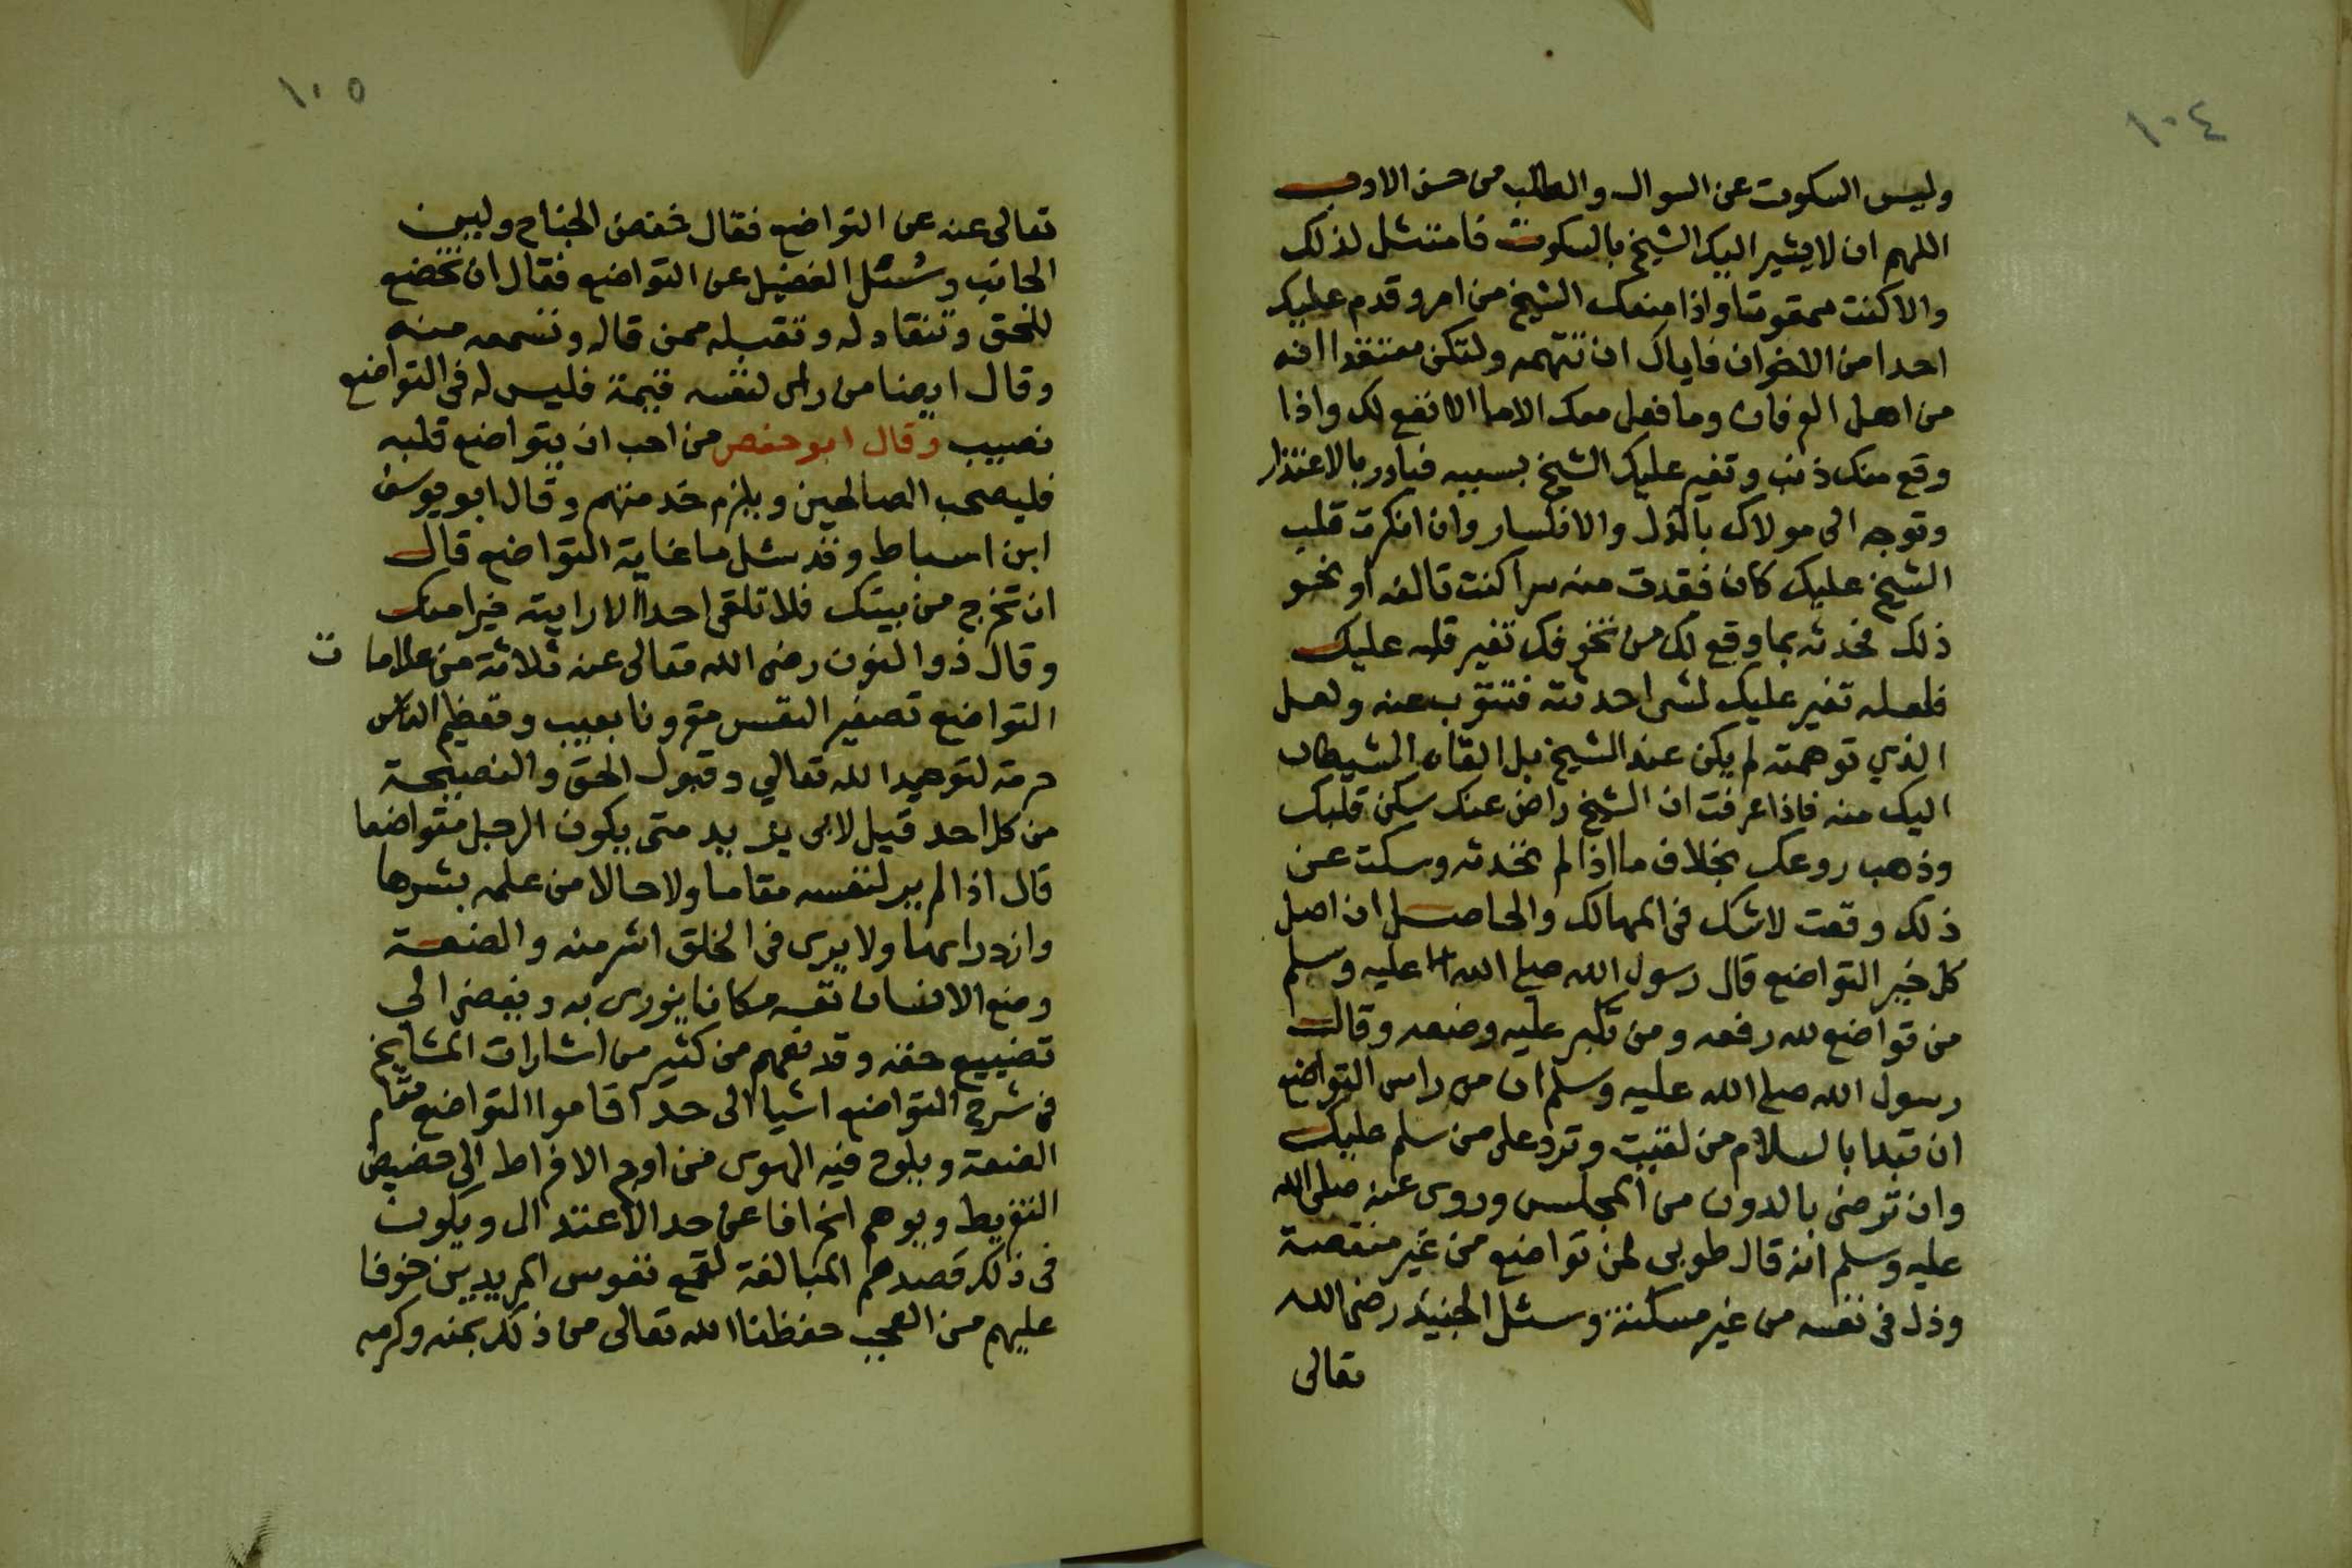 ١٠٤
وليس السكوت عن السوال والطلب من حسن الادب
اللهم ان لا يشير اليك الشيخ بالسكوت فامتثل لذلك
والا كنت ممقوتا واذا منعك الشيخ من امر وقدم عليك
احدا من الاخوان فاياك ان تتهمه ولتكن معتقدا انه
من اهل العرفان وما فعل معك الا ما الانفع لك واذا
وقع منك ذنب وتغير عليك الشيخ بسببه فبادر بالاعتذار
وتوجه الى مولاك بالذل والانكسار وان انكرت قلب
الشيخ عليك كان فقدت منه سرا كنت تالفه او نحو
ذلك فحدثه بما وقع لك من تخوفك تغير قلبه عليك
فلعله تغير عليك لشى احدثته فتتوب عنه ولعل
الذي توهمته لم يكن عند الشيخ بل القاه الشيطان
اليك منه فاذا عرفت ان الشيخ راض عنك سكن قلبك
وذهب روعك بخلاف ما اذا لم تحدثه وسكت عن
ذلك وقعت لا شك فى المهالك والحاصل ان اصل
كل خير التواضع قال رسول الله صلى الله عليه وسلم
من تواضع لله رفعه ومن تكبر عليه وضعه وقال
رسول الله صلى الله عليه وسلم ان من راس التواضع
ان تبدا بالسلام من لقيت وترد على من سلم عليك
وان ترضى بالدون من المجلس وروى عنه صلى الله
عليه وسلم انه قال طوبى لمن تواضع من غير منقصة
وذل فى نفسه من غير مسكنة وسئل الجنيد رضى الله
تعالى
١٠٥
تعالى عنه عن التواضع فقال خفض الجناح ولين
الجانب وسُئل الفضيل عن التواضع فقال ان تخضع
للحق وتنقاد له وتقبله ممن قاله وتسمعه منه
وقال ايضا من راى لنفسه قيمة فليس له فى التواضع
نصيب وقال ابو حفص من احب ان يتواضع قلبه
فليصحب الصالحين ويلزم خدمتهم وقال ابو يوسف
ابن اسباط وقد سئل ما غاية التواضع قال
ان تخرج من بيتك فلا تلقى احدا الا رايته خيرا منك
وقال ذو النون رضى الله تعالى عنه ثلاثة من علاما ت
التواضع تصغير النفس مقرونا بعيب وتعظيم الناس
حرمة لتوحيد الله تعالي وقبول الحق والنصيحة
من كل احد قيل لابى يزيد متى يكون الرجل متواضعا
قال اذا لم ير لنفسه مقاما ولا حالا من علمه بشرها
وازدرايها ولا يرى فى الخلق اشر منه والضعة
وضع الانسان نفسه مكانا يزرى به ويفضى الي
تضييع حقه وقد تفهم من كثير من اشارات المشايخ
فى شرح التواضع اشيا الى حد اقاموا التواضع مقام
الضعة ويلوح فيه الهوى من اوج الافراط الى حضيض
التفريط ويوهم انحرافا عن حد الاعتدال ويكون
فى ذلك قصدهم المبالغة لقمع نفوس المريدين خوفا
عليهم من العجب حفظنا الله تعالى من ذلك بمنه وكرمه